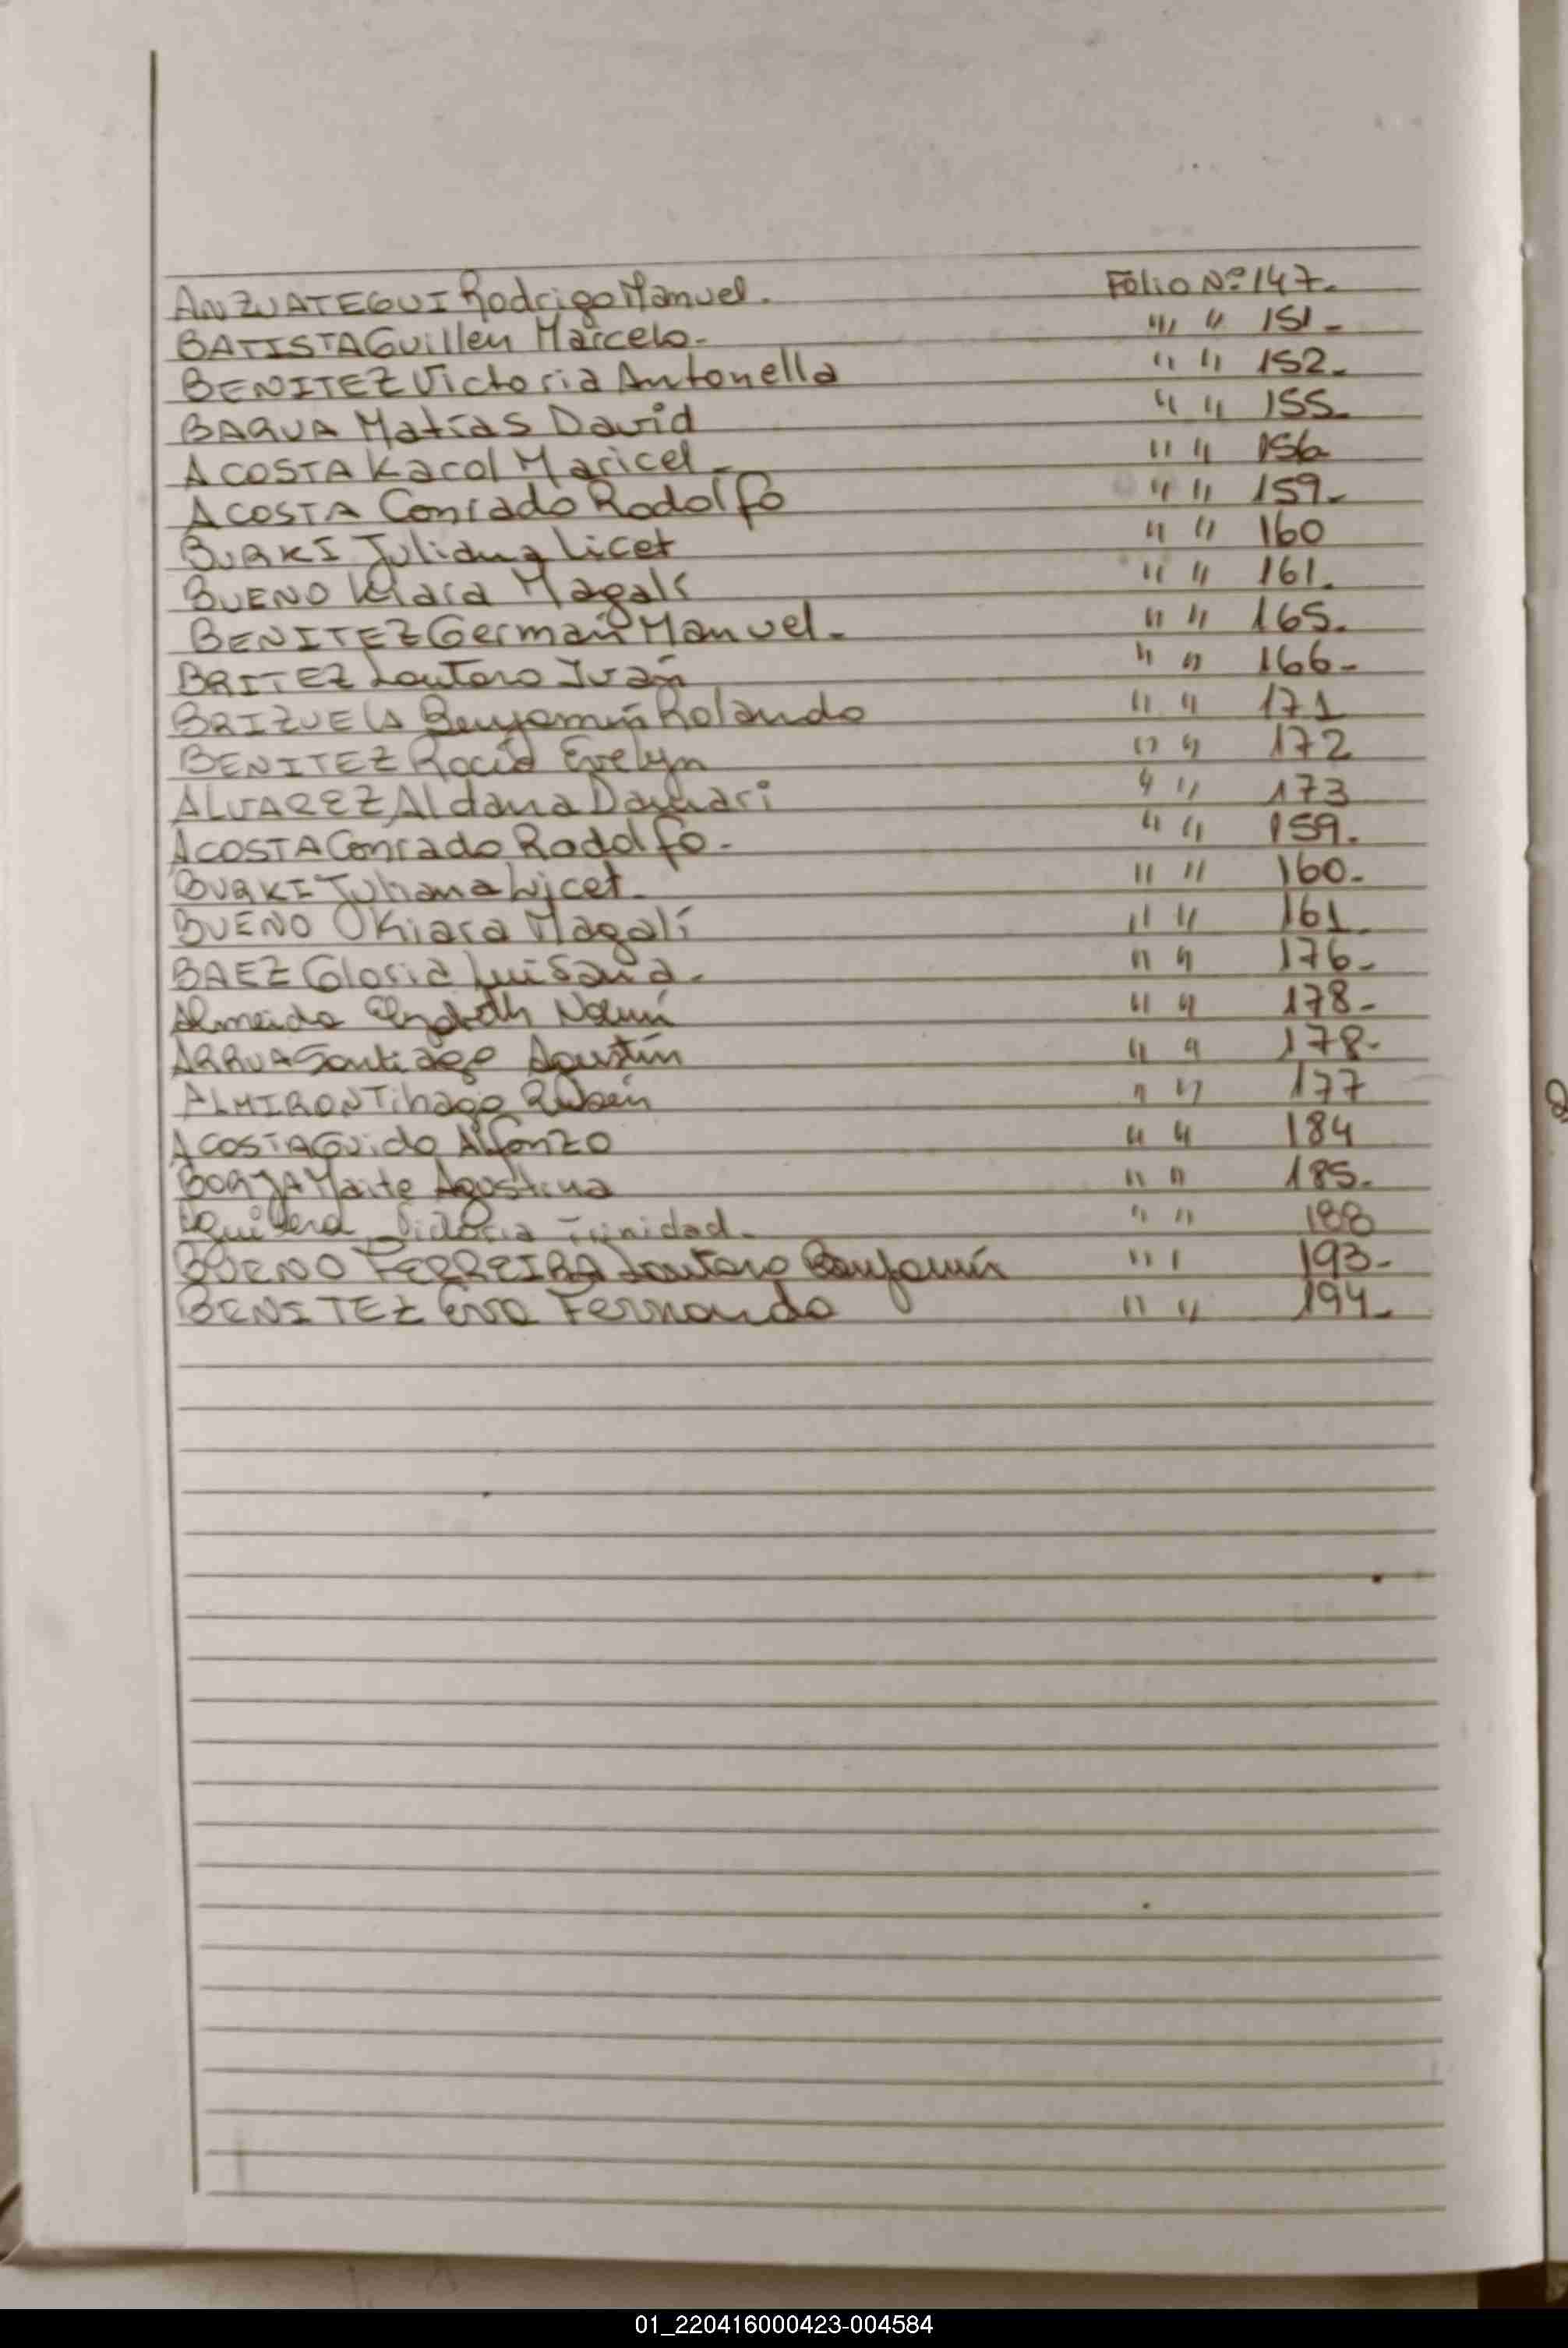 ANZUATEGUI Rodrigo Manuel. Folio Nº 147.
BATISTA Guillen Marcelo. " " 151-
BENITEZ Victoria Antonella " " 152.
BAQUA Matías David " " 155.
ACOSTA Karol Maricel. " " 156
ACOSTA Conrado Rodolfo " " 159.
BURKI Juliana Licet " " 160
BUENO Kiara Magalí " " 161.
BENITEZ Germán Manuel. " " 165.
BRITEZ Lautaro Iván " " 166-
BRIZUELA Benjamín Rolando " " 171
BENITEZ Rocío Evelyn " " 172
ALVAREZ Aldana Damari " " 173
ACOSTA Conrado Rodolfo. " " 159.
BURKI Juliana Licet. " " 160.
BUENO Kiara Magalí " " 161.
BAEZ Gloria Luisana. " " 176-
Almeida Noemí " " 178-
ARRUA Santiago Agustín " " 178-
ALMIRON Tihago Rubén " " 177
ACOSTA Guido Alfonzo " " 184
BORJA Maite Agostina " " 185.
Trinidad. " " 188
BUENO FERREIRA Lautaro Benjamín " " 193-
BENITEZ Fernando " " 194.
01_220416000423-004584